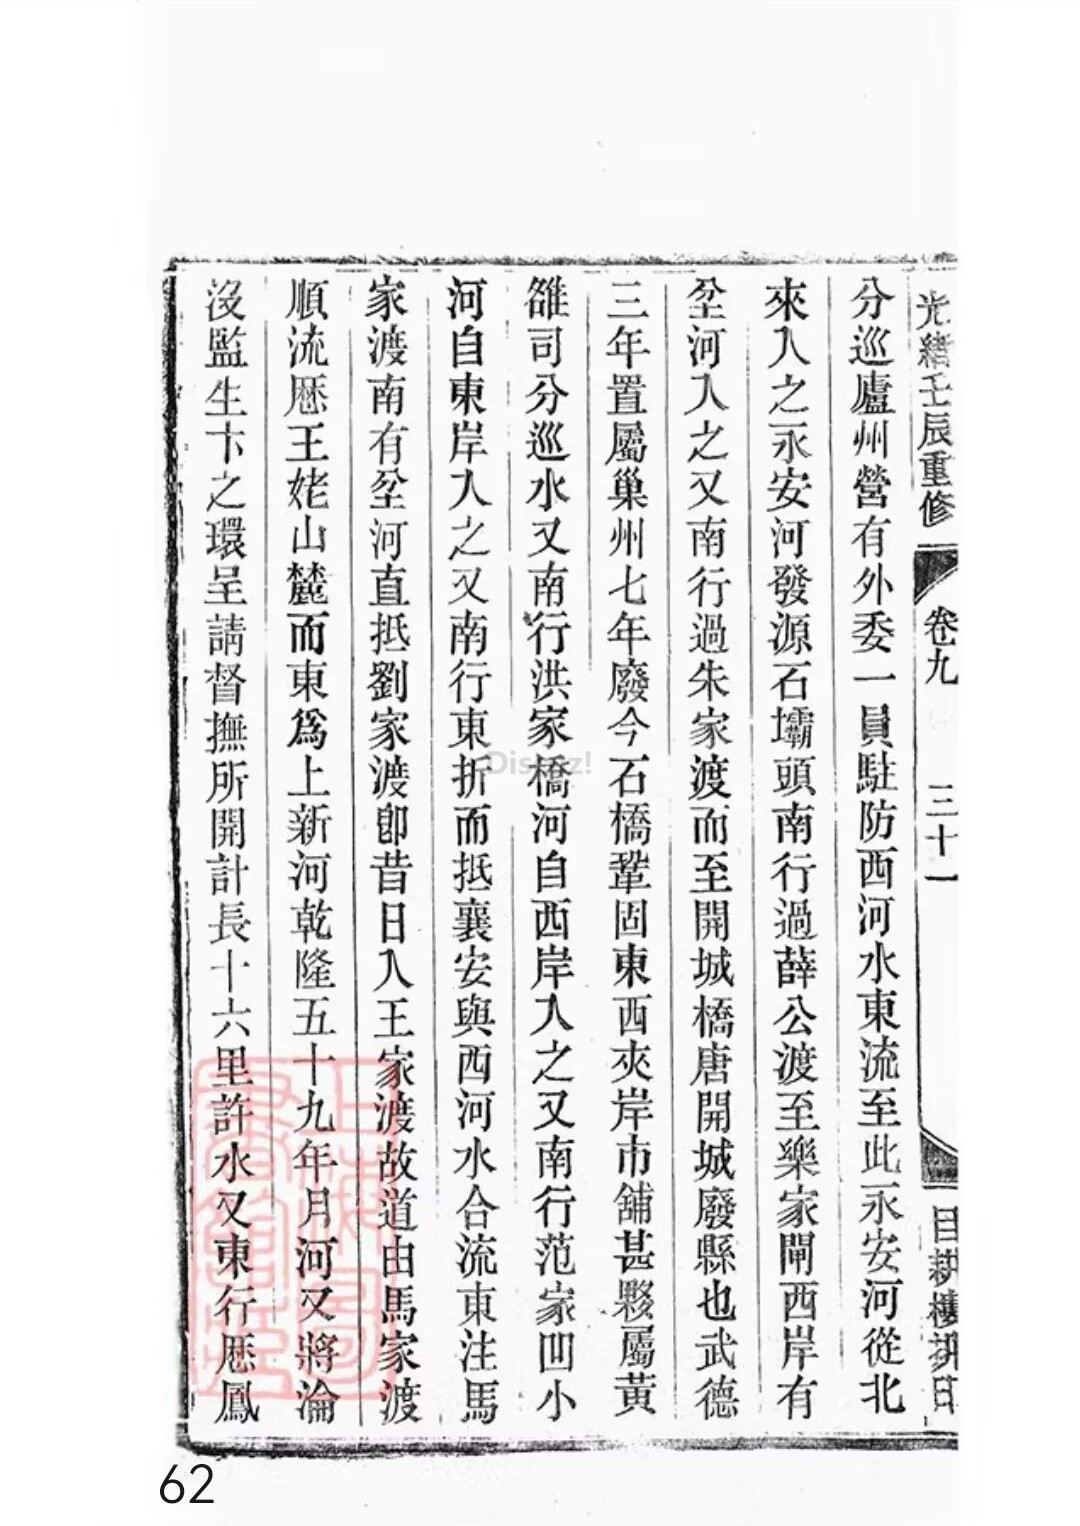 光緒壬辰重修
卷九
三十一
目耕樓
分巡廬州營有外委一員駐防西河水東流至此永安河從北
來入之永安河發源石壩頭南行過薛公渡至樂家閘西岸有
坌河入之又南行過朱家渡而至開城橋唐開城廢縣也武德
三年置屬巢州七年廢今石橋鞏固東西夾岸市舖甚夥屬黃
雒司分巡水又南行洪家橋河自西岸入之又南行范家凹小
河自東岸入之又南行東折而抵襄安與西河水合流東注馬
家渡南有坌河直抵劉家渡卽昔日入王家渡故道由馬家渡
順流厯王姥山麓而東爲上新河乾隆五十九年月河又將淪
沒監生卞之環呈請督撫所開計長十六里許水又東行厯鳳
Discuz!
62